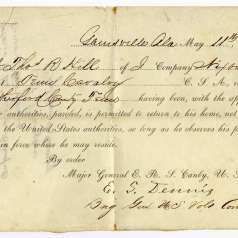 Gainsville Ala May 11th
Thos B Hill of I Company
Tenn Cavalry C. S. A.,
Co Tenn having been, with the app
authorities, paroled, is permitted to return to his home, not
the United States authorities, so long as he observes his p
in force where he may reside.
By order
Major General E. R. S. Canby, U. S.
E. S. Dennis
Brig Gen U S Vols Com